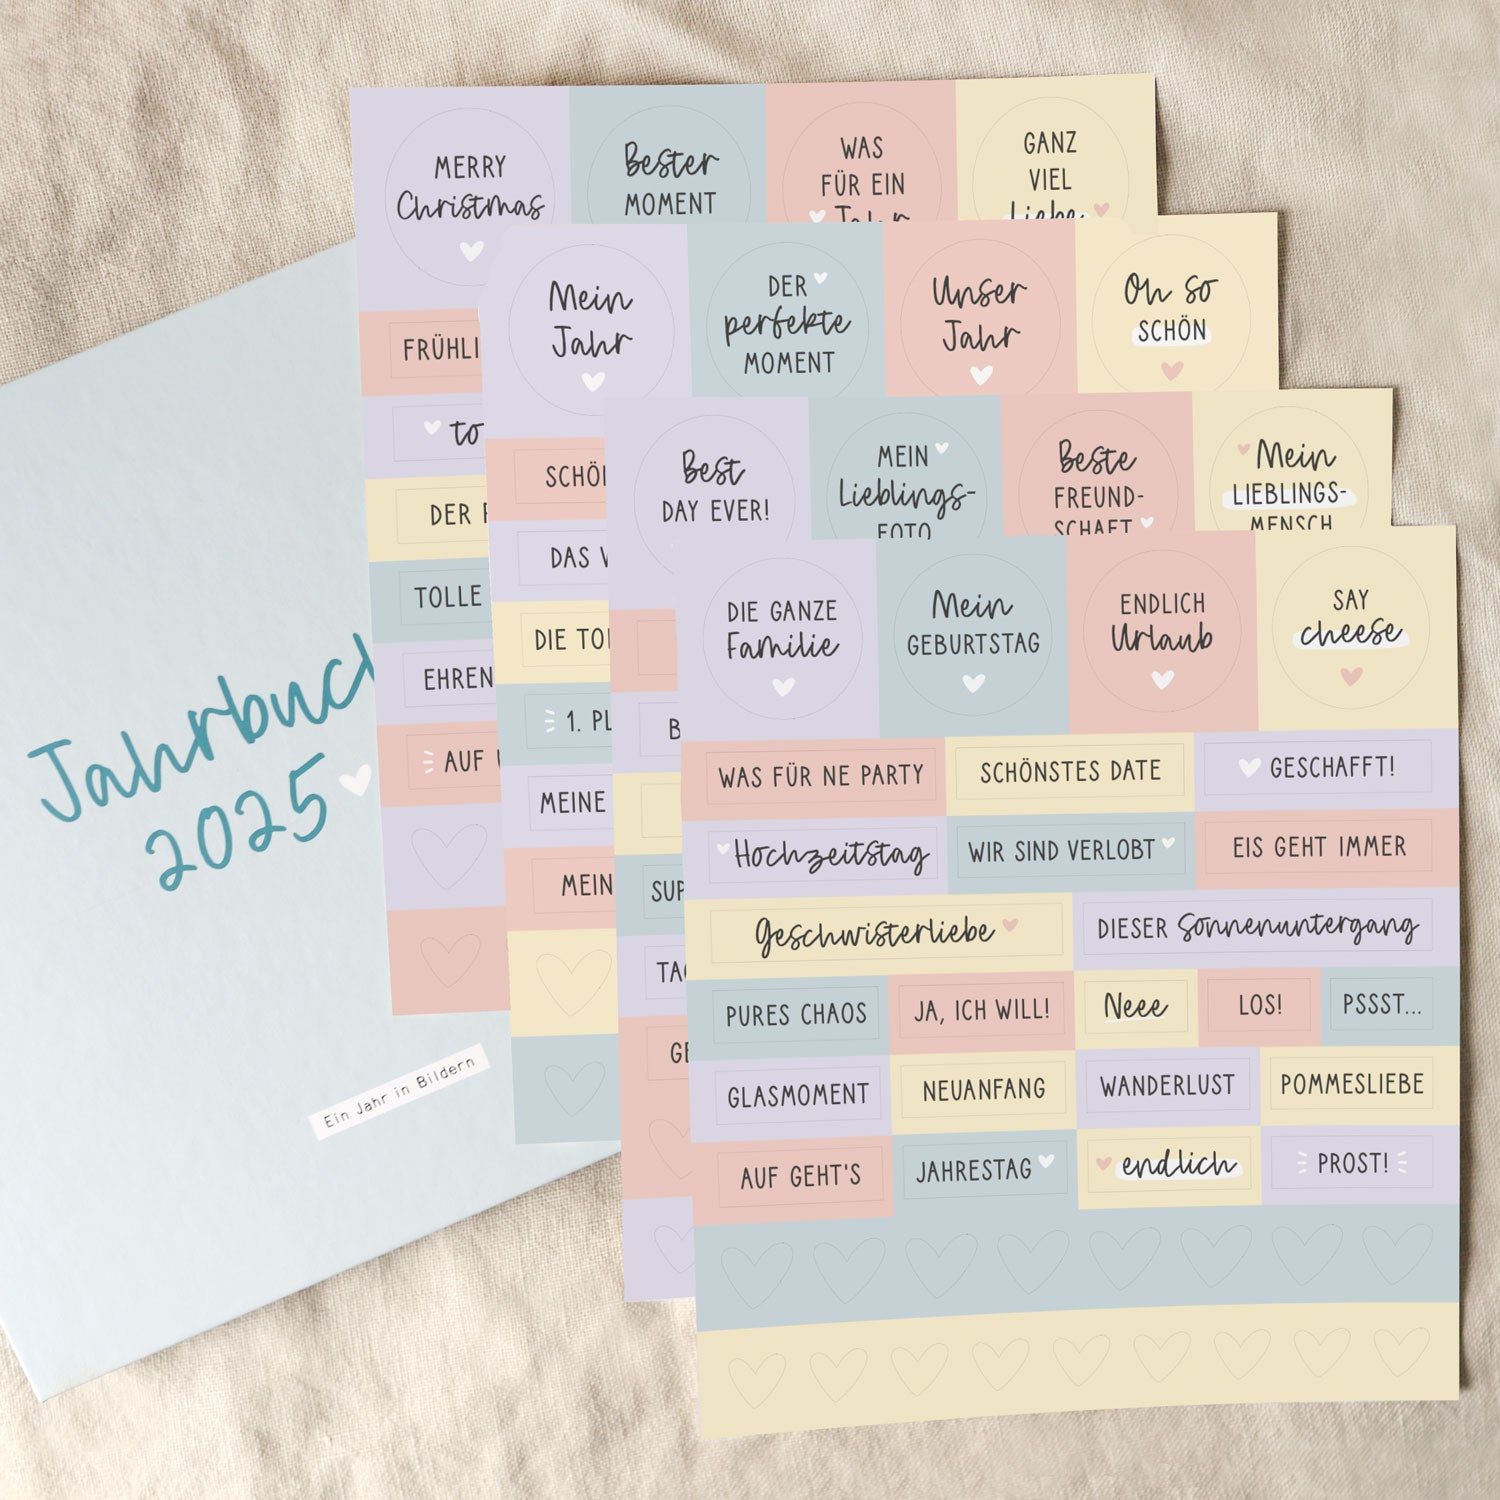 MERRY
Christmas
Bester
MOMENT
WAS
FÜR EIN
Jahr
GANZ
VIEL
Liebe
DER
TOLLE
EHREN
AUF
Mein
Jahr
DER
perfekte
MOMENT
Unser
Jahr
Oh so
SCHÖN
DAS
DIE
1.
MEINE
MEIN
Best
DAY EVER!
MEIN
Lieblings-
FOTO
Beste
FREUND-
SCHAFT
Mein
LIEBLINGS-
MENSCH
DIE GANZE
Familie
Mein
GEBURTSTAG
ENDLICH
Urlaub
SAY
cheese
WAS FÜR NE PARTY
SCHÖNSTES DATE
GESCHAFFT!
Hochzeitstag
WIR SIND VERLOBT
EIS GEHT IMMER
Geschwisterliebe
DIESER Sonnenuntergang
PURES CHAOS
JA, ICH WILL!
Neee
LOS!
PSSST...
GLASMOMENT
NEUANFANG
WANDERLUST
POMMESLIEBE
AUF GEHT'S
JAHRESTAG
endlich
PROST!
Jahrbuch
2025
Ein Jahr in Bildern